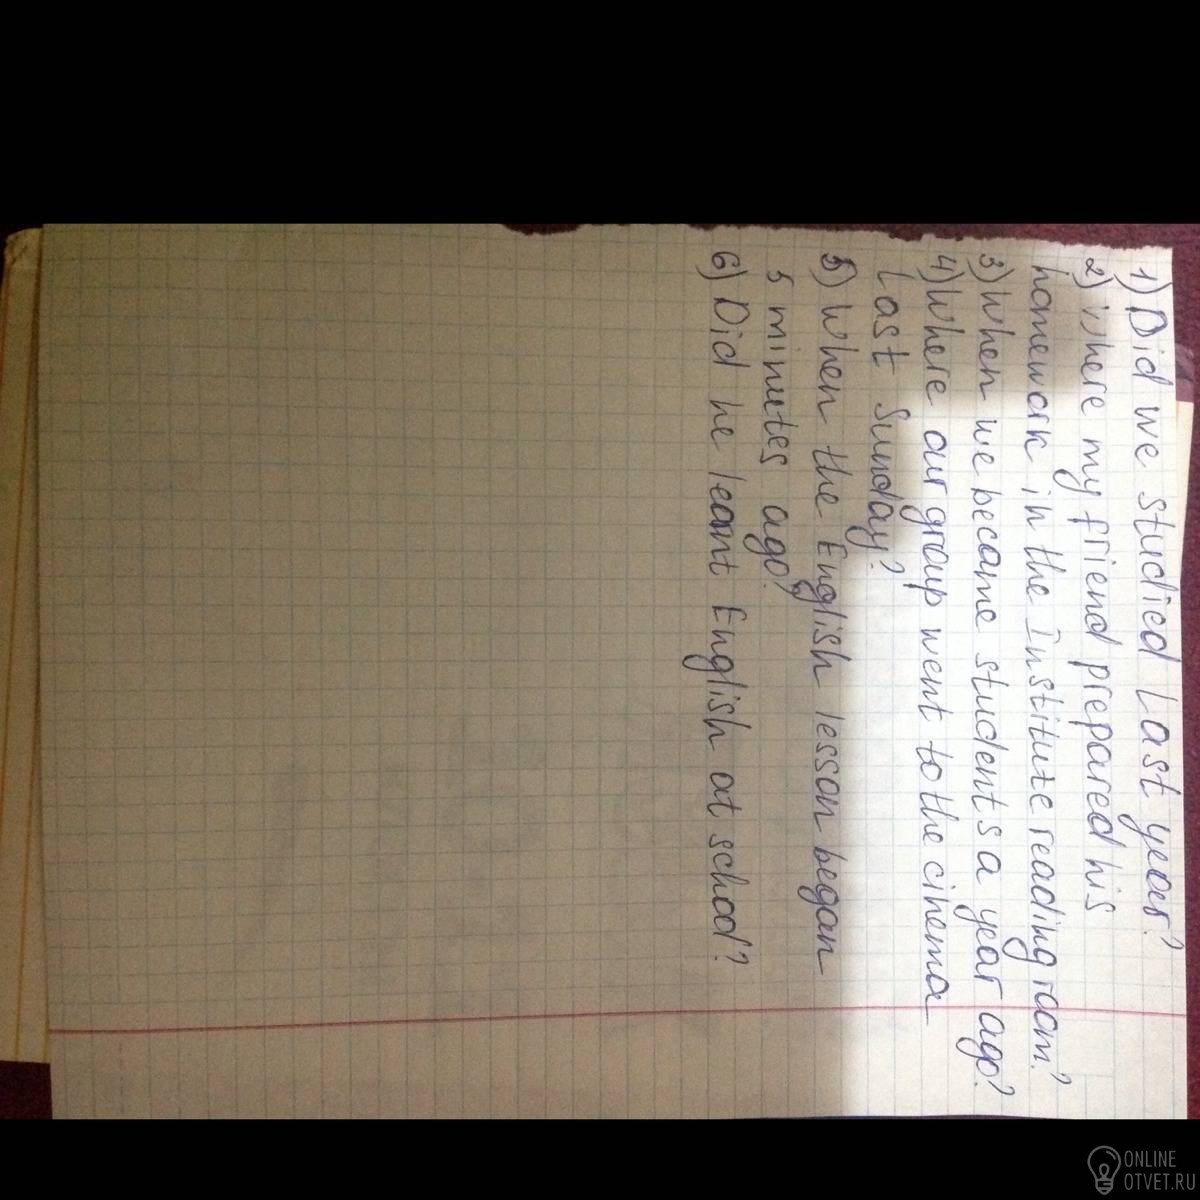 1) Did we studied Last year?
2) where my friend prepared his
homework in the Institute reading room?
3) When we became students a year ago?
4) Where our group went to the cinema
Last Sunday?
5) When the English lesson began
5 minutes ago?
6) Did he learnt English at school?
ONLINE
OTVET.RU